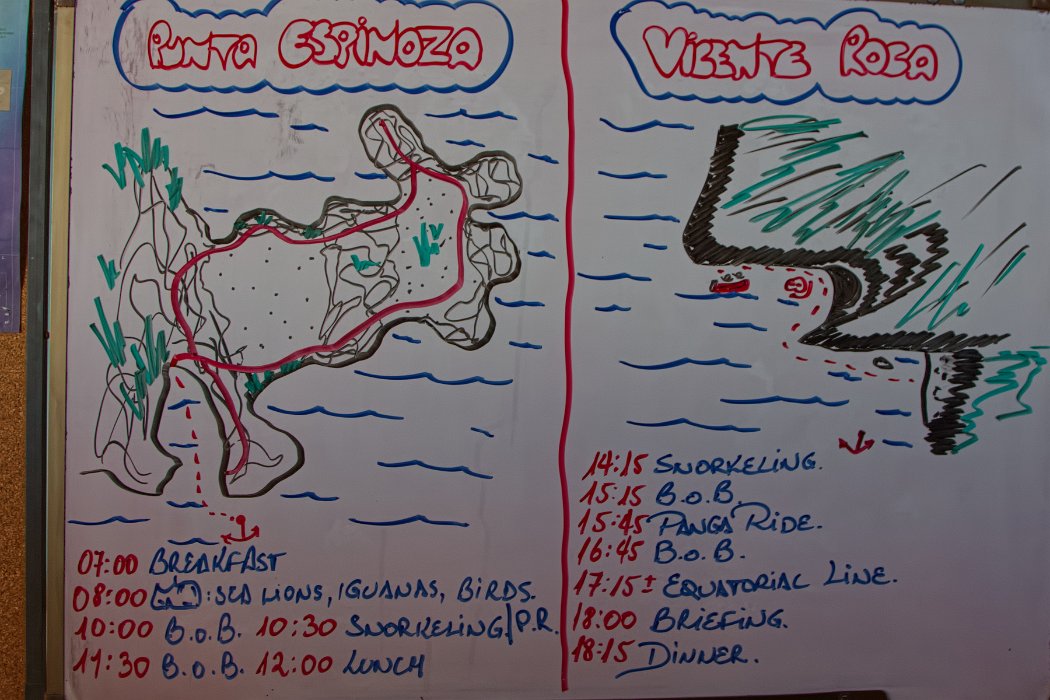 PUNTA ESPINOZA
07:00 BREAKFAST
08:00 : SEA LIONS, IGUANAS, BIRDS.
10:00 B.O.B. 10:30 SNORKELING/P.R.
11:30 B.O.B. 12:00 LUNCH
VICENTE ROCA
14:15 SNORKELING.
15:15 B.O.B.
15:45 PANGA RIDE.
16:45 B.O.B.
17:15± EQUATORIAL LINE.
18:00 BRIEFING.
18:15 DINNER.